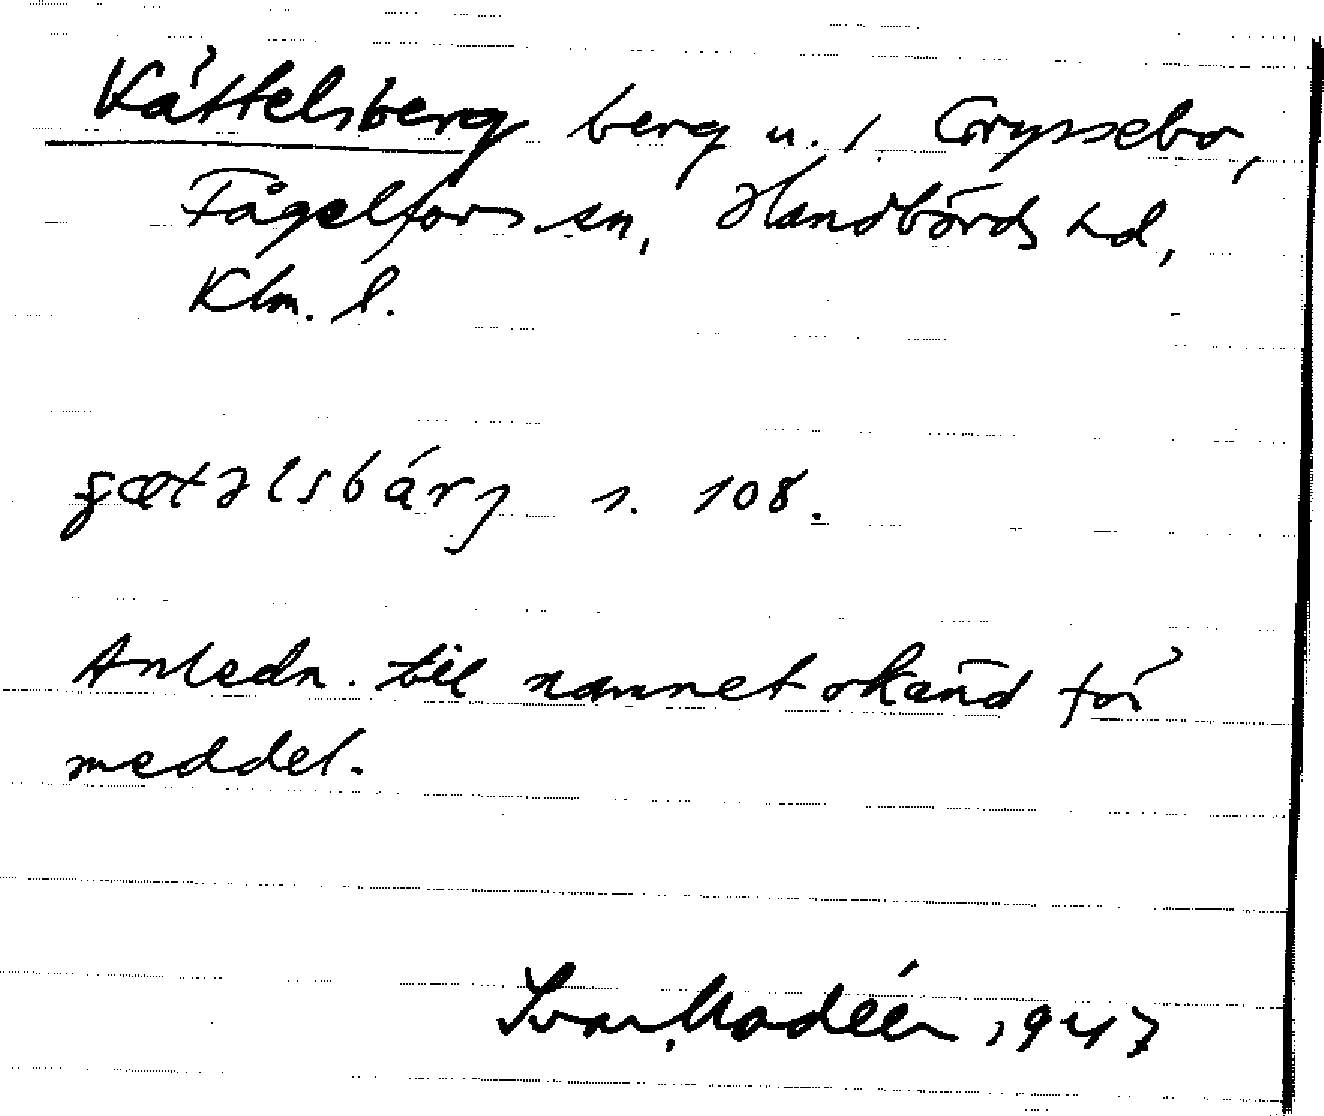 Kättelsberg berg u. / Gryssebo,
Fågelfors sn, Handbörds hd,
Klm. l.
gætəlsbárj s. 108.
Anledn. till namnet okänd för
meddel.
Ivar Modéer 1947